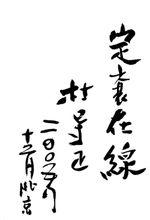 定襄在線
杜导正
二〇〇五年
十二月北京